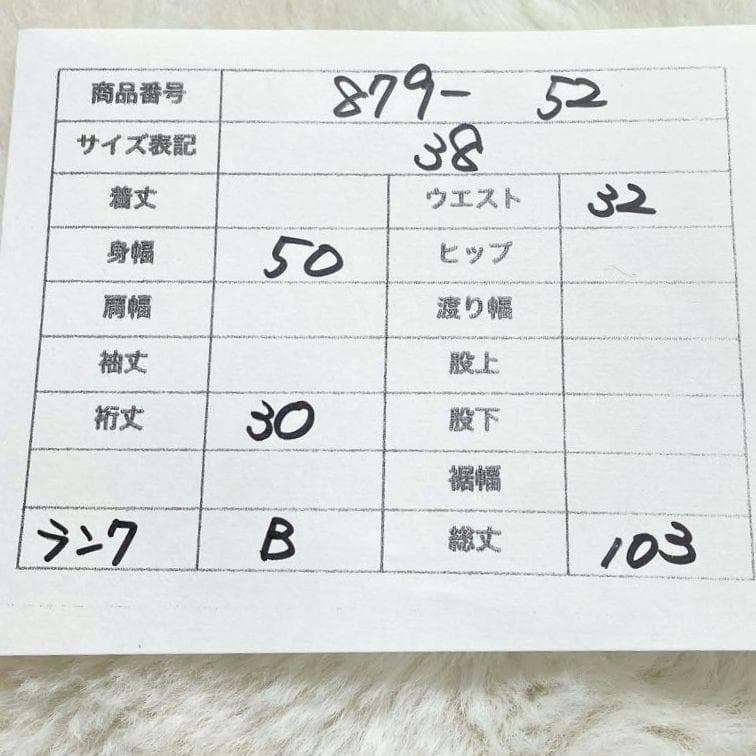 商品番号 879- 52
サイズ表記 38
着丈 ウエスト 32
身幅 50 ヒップ
肩幅 渡り幅
袖丈 股上
裄丈 30 股下
裾幅
ランク B 総丈 103